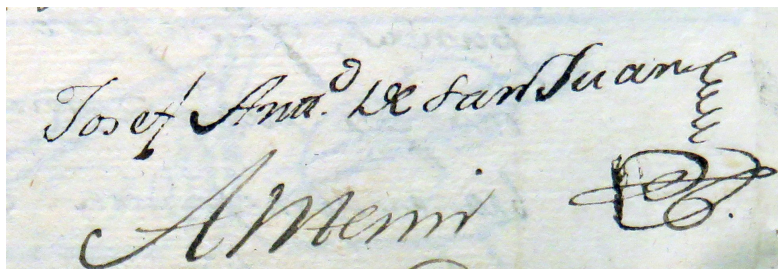 Josef Anto. De San Juan
Ante mi